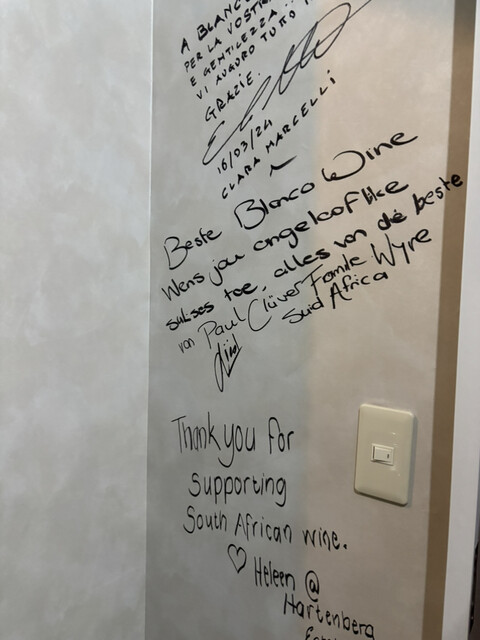 A BLANCO
PER LA VOSTRA
E GENTILEZZA...
VI AUGURO TUTTO
GRAZIE.
16/03/24
CLARA MARCELLI
Beste Blanco Wine
Wens jou ongelooflike
sukses toe, alles van die beste
van Paul Clüver Familie Wyne
Suid Afrika
Thank you for
supporting
South African wine.
♡ Heleen @
Hartenberg